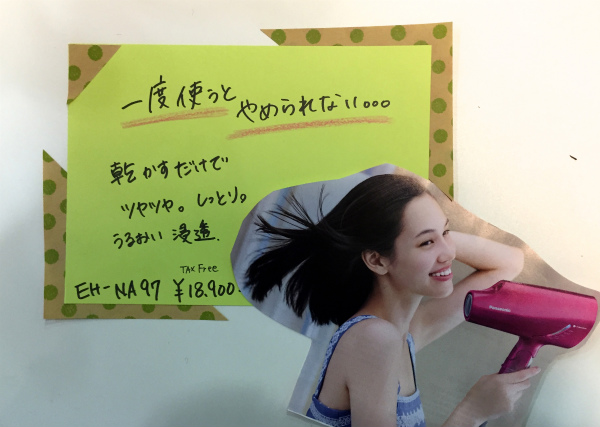 一度使うと やめられない。。。
乾かすだけで
ツヤツヤ。しっとり。
うるおい 浸透.
TAX Free
EH-NA97 ¥18.900
Panasonic